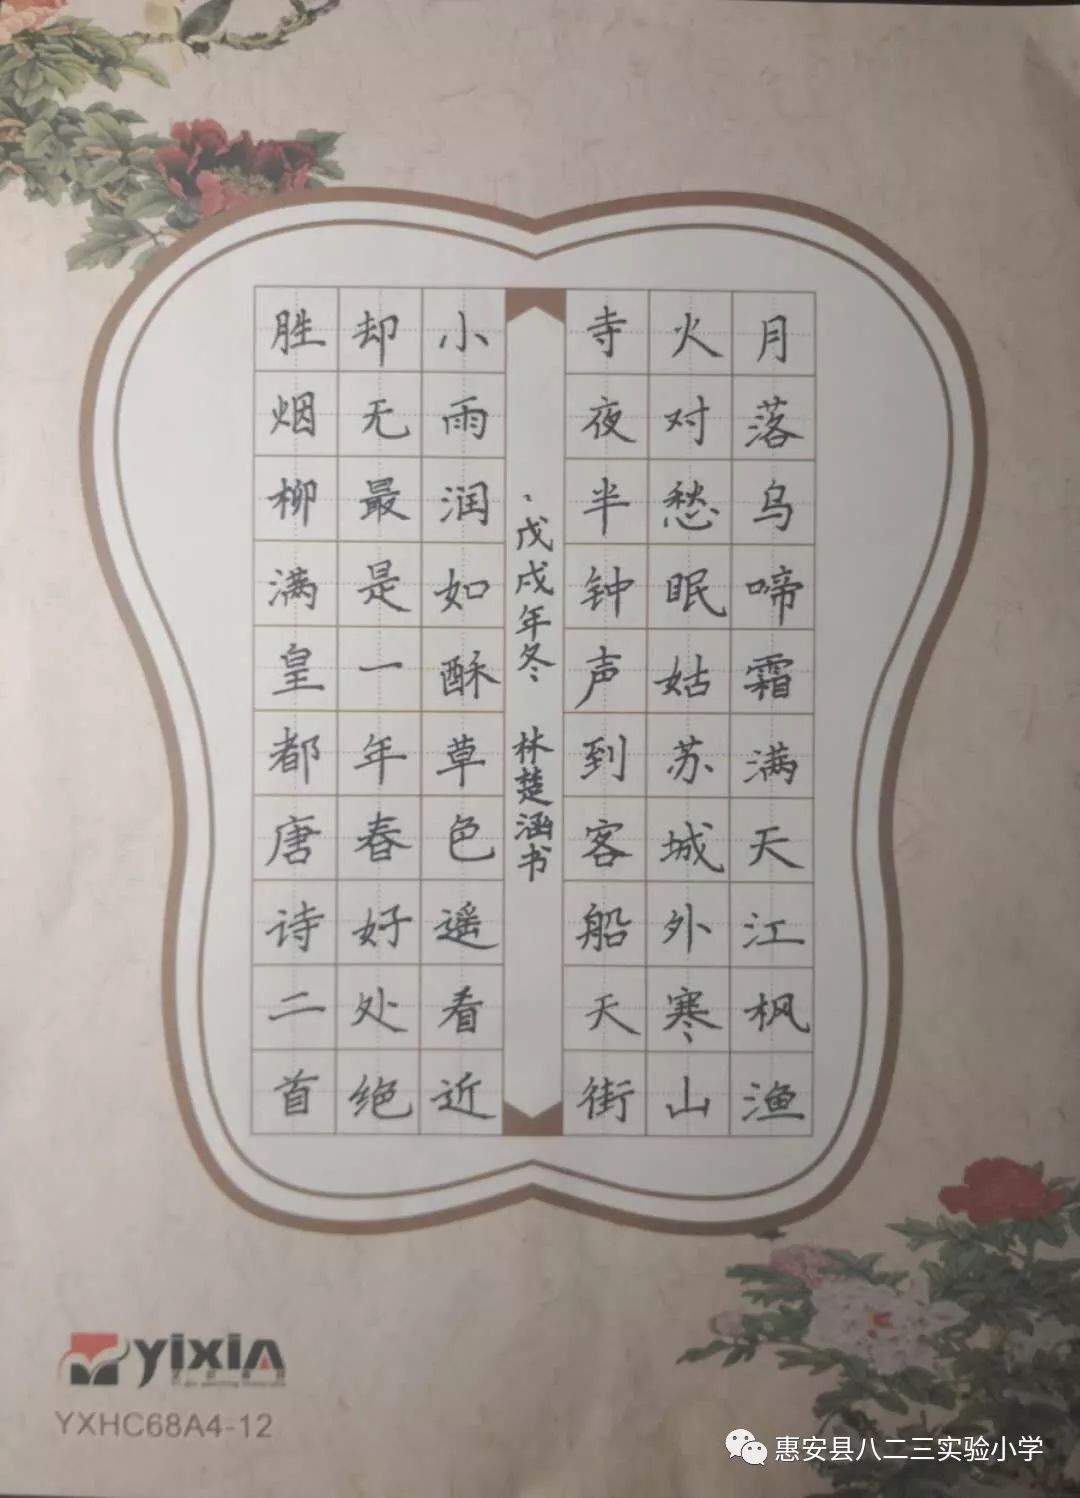 月落乌啼霜满天江枫渔
火对愁眠姑苏城外寒山
寺夜半钟声到客船天街
小雨润如酥草色遥看近
却无最是一年春好处绝
胜烟柳满皇都唐诗二首
戊戌年冬 林楚涵书
yixiA
YXHC68A4-12
惠安县八二三实验小学